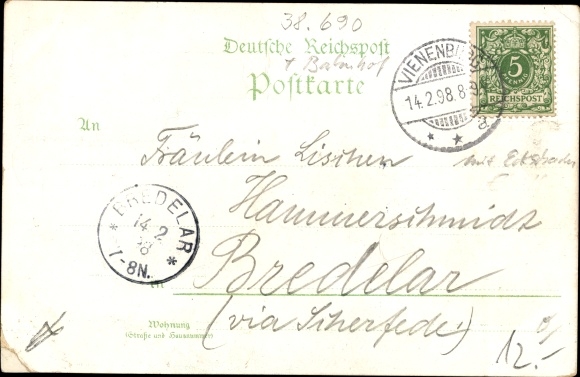 38.690
Deutsche Reichspost
+ Bahnhof
Postkarte
VIENENBURG
14.2.98.8-9N.
a
5
REICHSPOST
An
Fräulein Lisschen
mit
Hammerschmidt
BREDELAR
14 2
98
7-8N.
in Bredelar
Wohnung
(Straße und Hausnummer)
(via Scherfede)
12.-